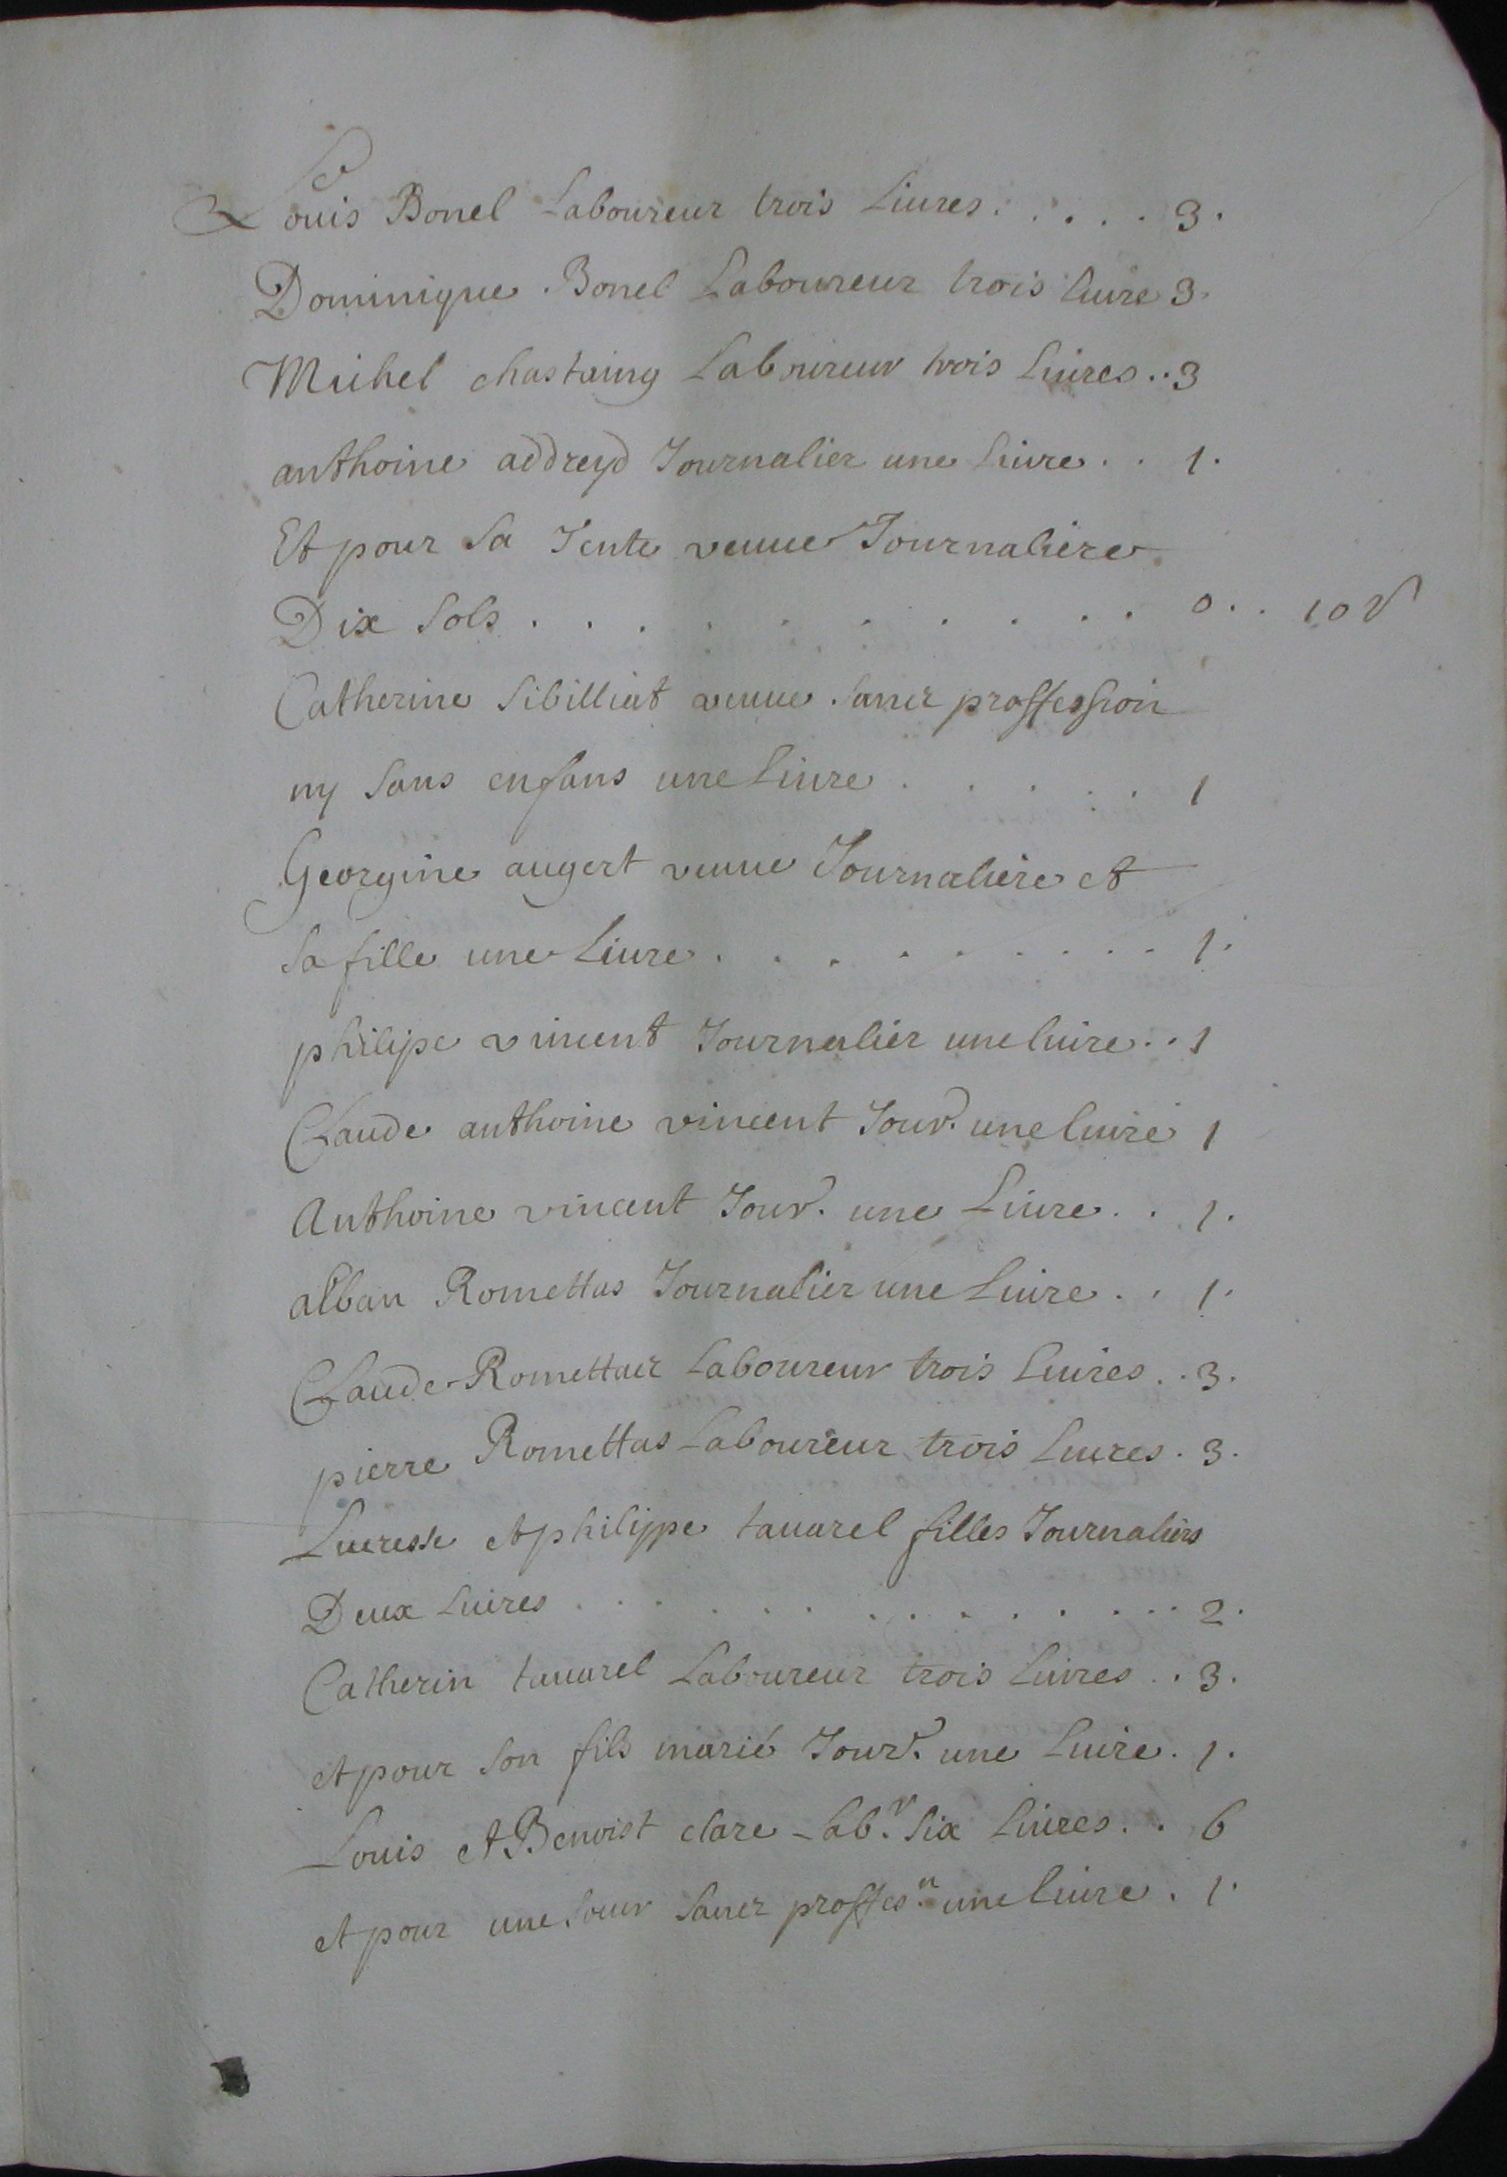 Louis Bonel Laboureur trois Liures . . . . . 3.
Dominique Bonel Laboureur trois liure 3.
Michel chastaing Laboureur trois Liures . . 3
anthoine addreyd Journalier une Liure . . 1.
Et pour sa tente veuue Journaliere
Dix sols . . . . . . . . . . 0 . . 10 s
Catherine Sibilliat veuue sans proffession
ny sans enfans une Liure . . . . . 1
Georgine augert veuue Journaliere et
sa fille une Liure . . . . . . . . 1.
philipe vincent Journalier une liure . . 1
Claude anthoine vincent Jour. une liure 1
Anthoine vincent Jour. une Liure . . 1.
alban Romettas Journalier une Liure . . 1.
Claude Romettaz Laboureur trois liures . . 3.
pierre Romettas Laboureur trois liures . 3.
Lucresse et philippe tauarel filles Journaliers
Deux liures . . . . . . . . . . . . 2.
Catherin tauarel Laboureur trois Liures . . 3.
et pour son fils marié Jour. une liure . 1.
Louis et Benoist clare Labr. six liures . . 6
et pour une soeur sans proffesn. une liure . 1.